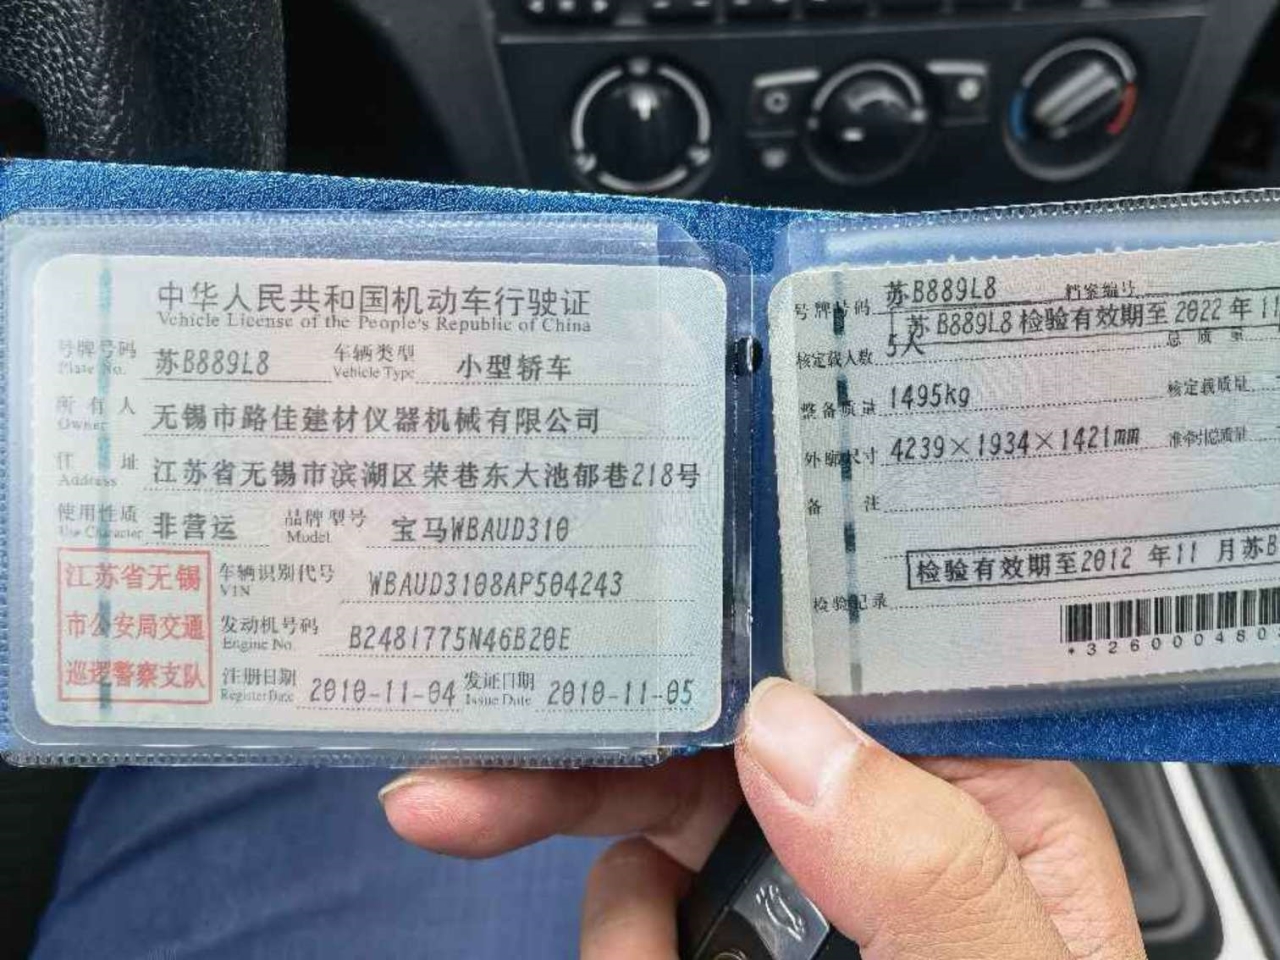 中华人民共和国机动车行驶证
Vehicle License of the People's Republic of China
号牌号码 苏B889L8 车辆类型 小型轿车
Plate No. Vehicle Type
所有人 无锡市路佳建材仪器机械有限公司
Owner
住址 江苏省无锡市滨湖区荣巷东大池郁巷218号
Address
使用性质 非营运 品牌型号 宝马WBAUD310
Use Character Model
江苏省无锡
市公安局交通
巡逻警察支队
车辆识别代号 WBAUD3108AP504243
VIN
发动机号码 B2481775N46B20E
Engine No.
注册日期 2010-11-04 发证日期 2010-11-05
Register Date Issue Date
号牌号码 苏B889L8 档案编号
苏B889L8检验有效期至2022年11
核定载人数 5人 总质量
整备质量 1495kg 核定载质量
外廓尺寸 4239×1934×1421mm 准牵引总质量
备注
检验有效期至2012 年11 月苏B
检验记录
*326000480